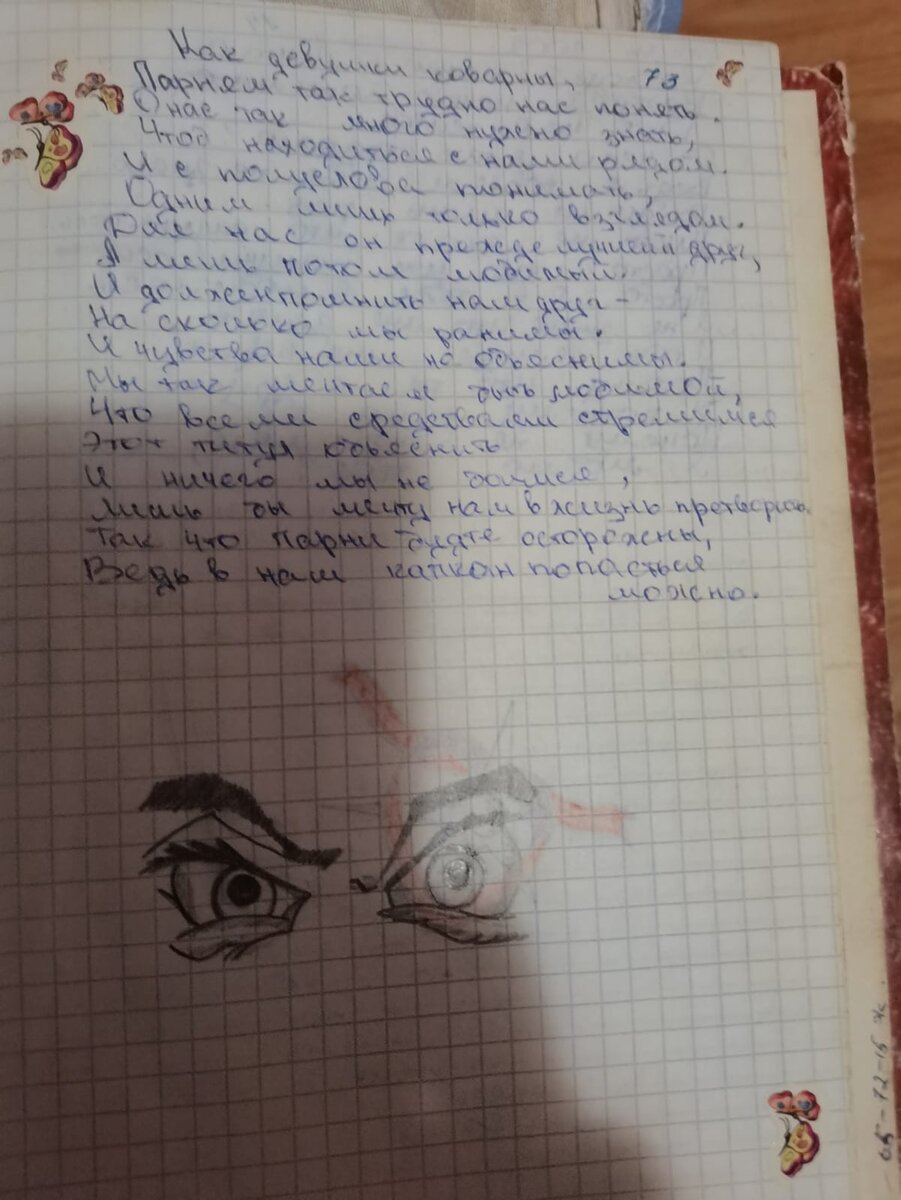 Как девушки коварны, 73
Парням так трудно нас понять.
О нас так много нужно знать,
Чтоб находиться с нами рядом.
И с полуслова понимать,
Одним лишь только взглядом.
Для нас он прежде лучший друг,
А лишь потом любимый.
И должен помнить наш друг -
На сколько мы ранимы.
И чувства наши не обьяснимы.
Мы так мечтаем быть любимой,
Что всеми средствами стремимся
Этот титул обьяснить
И ничего мы не боимся,
Лишь бы мечту нам в жизнь претворить
Так что парни будте осторожны,
Ведь в наш капкан попасться
можно.